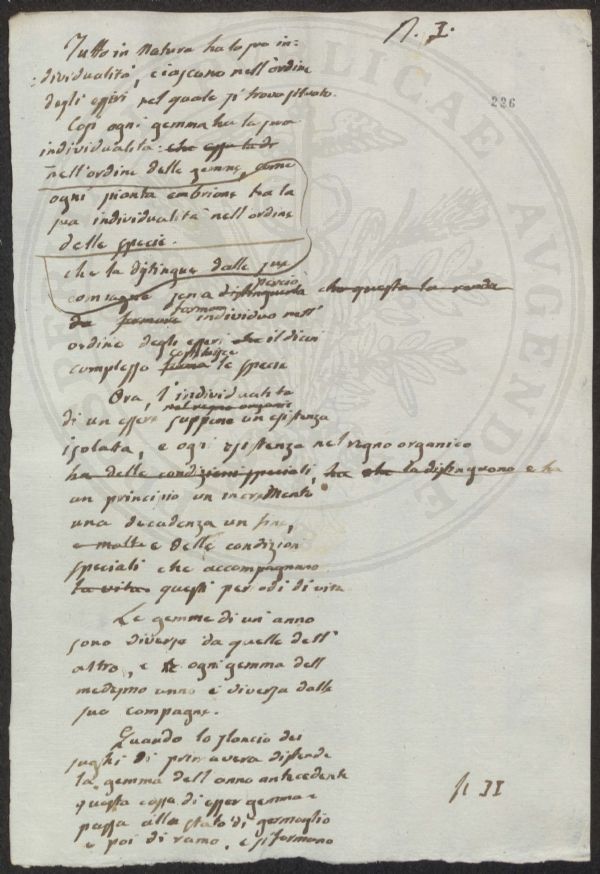 N. I.
226
Tutto in Natura ha la sua in=
:dividualità, ciascono nell'ordine
degli esseri nel quale si trova situato.
Così ogni gemma ha la sua
individualità che essa ha di
nell'ordine delle gemme, come
ogni pianta embrione ha la
sua individualità nell'ordine
delle specie.
che la distingue dalle sue
compagne senza distinguerla perciò che questa la renda
da formare formano individuo nell'
ordine degli esseri che il di cui
complesso forma costituisce le specie
Ora, l'individualità
di un essere nel regno organico suppone un esistenza
isolata, e ogni esistenza nel regno organico
ha delle condizioni speciali, ha che la distinguono e ha
un principio un incremento
una decadenza un fine,
e molte e delle condizioni
speciali che accompagnano
la vita questi periodi di vita
Le gemme di un'anno
sono diverse da quelle dell'
altro, e ogni gemma dell
medesmo anno è diversa dalle
sue compagne.
Quando lo slancio dei
sughi di primavera distende
la gemma dell'anno antecedente
questa cessa di esser gemma e
passa allo stato di germoglio
e poi di ramo, e si formano
N II